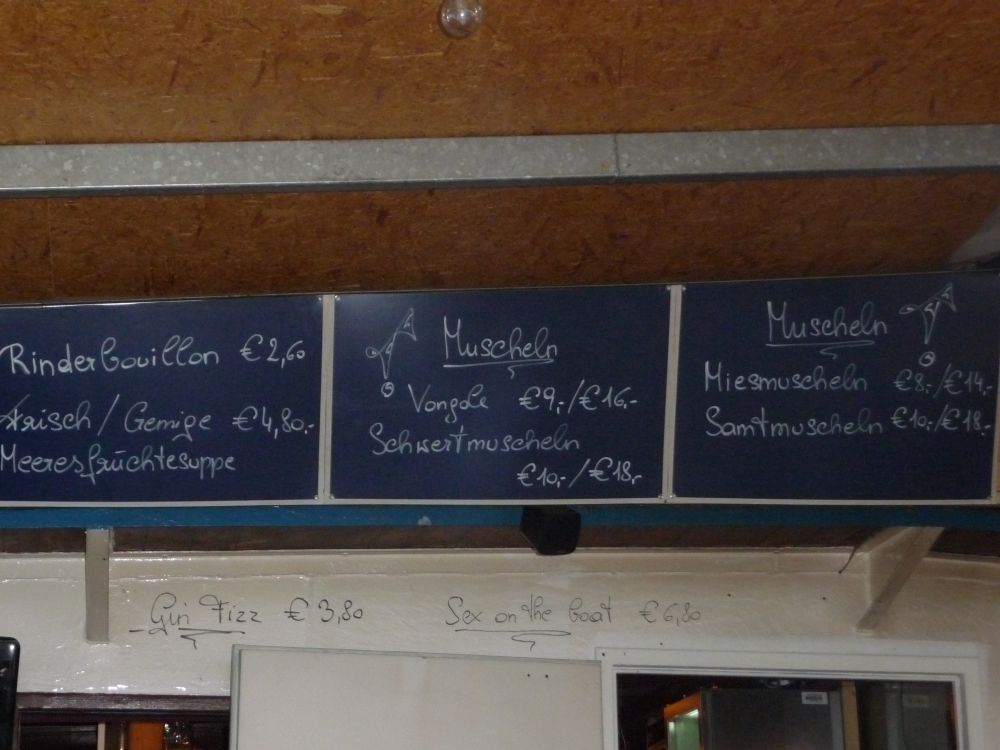 Rinderbouillon €2,60
Fleisch / Gemüse €4,80.-
Meeresfrüchtesuppe
Muscheln
Vongole €9,-/€16,-
Schwertmuscheln
€10,-/€18,-
Muscheln
Miesmuscheln €8,-/€14,-
Samtmuscheln €10,-/€18,-
Gin Fizz € 3,80
Sex on the boat € 6,80